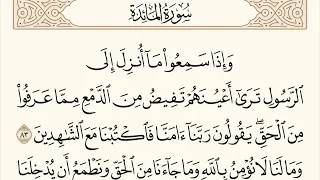 سُورَةُ المَائِدَة
وَإِذَا سَمِعُوا۟ مَآ أُنزِلَ إِلَى
ٱلرَّسُولِ تَرَىٰٓ أَعْيُنَهُمْ تَفِيضُ مِنَ ٱلدَّمْعِ مِمَّا عَرَفُوا۟
مِنَ ٱلْحَقِّ ۖ يَقُولُونَ رَبَّنَآ ءَامَنَّا فَٱكْتُبْنَا مَعَ ٱلشَّٰهِدِينَ ٨٣
وَمَا لَنَا لَا نُؤْمِنُ بِٱللَّهِ وَمَا جَآءَنَا مِنَ ٱلْحَقِّ وَنَطْمَعُ أَن يُدْخِلَنَا